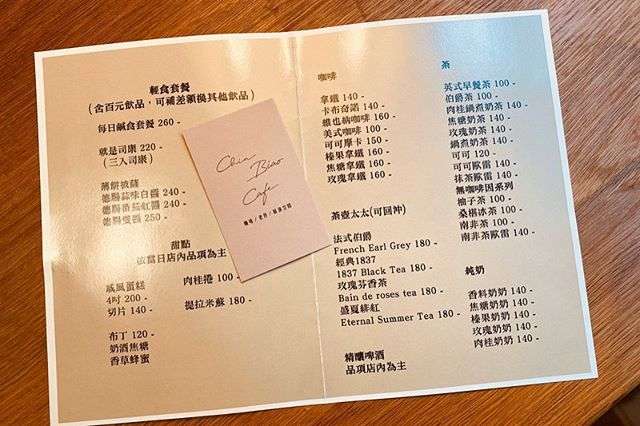 輕食套餐
(含百元飲品，可補差額換其他飲品)
每日鹹食套餐 260 -
就是司康 220 -
(三入司康)
薄餅披薩
德腸蒜味白醬 240 -
德腸番茄紅醬 240 -
德腸雙醬 250 -
甜點
依當日店內品項為主
戚風蛋糕
4吋 200 -
切片 140 -
肉桂捲 100
提拉米蘇 180 -
布丁 120 -
奶酒焦糖
香草蜂蜜
Chin Biao
Cafe
咖啡
拿鐵 140 -
卡布奇諾 140 -
維也納咖啡 160 -
美式咖啡 100 -
可可摩卡 150 -
榛果拿鐵 160 -
焦糖拿鐵 160 -
玫瑰拿鐵 160 -
茶壺太太(可回沖)
法式伯爵
French Earl Grey 180 -
經典1837
1837 Black Tea 180 -
玫瑰芬香茶
Bain de roses tea 180 -
盛夏緋紅
Eternal Summer Tea 180 -
精釀啤酒
品項店內為主
茶
英式早餐茶 100 -
伯爵茶 100 -
肉桂鍋煮奶茶 140 -
焦糖奶茶 140 -
玫瑰奶茶 140 -
鍋煮奶茶 140 -
可可 120 -
可可歐蕾 140 -
抹茶歐蕾 140 -
無咖啡因系列
柚子茶 100 -
桑椹冰茶 100 -
南非茶 100 -
南非茶歐蕾 140 -
純奶
香料奶奶 140 -
焦糖奶奶 140 -
榛果奶奶 140 -
玫瑰奶奶 140 -
肉桂奶奶 140 -